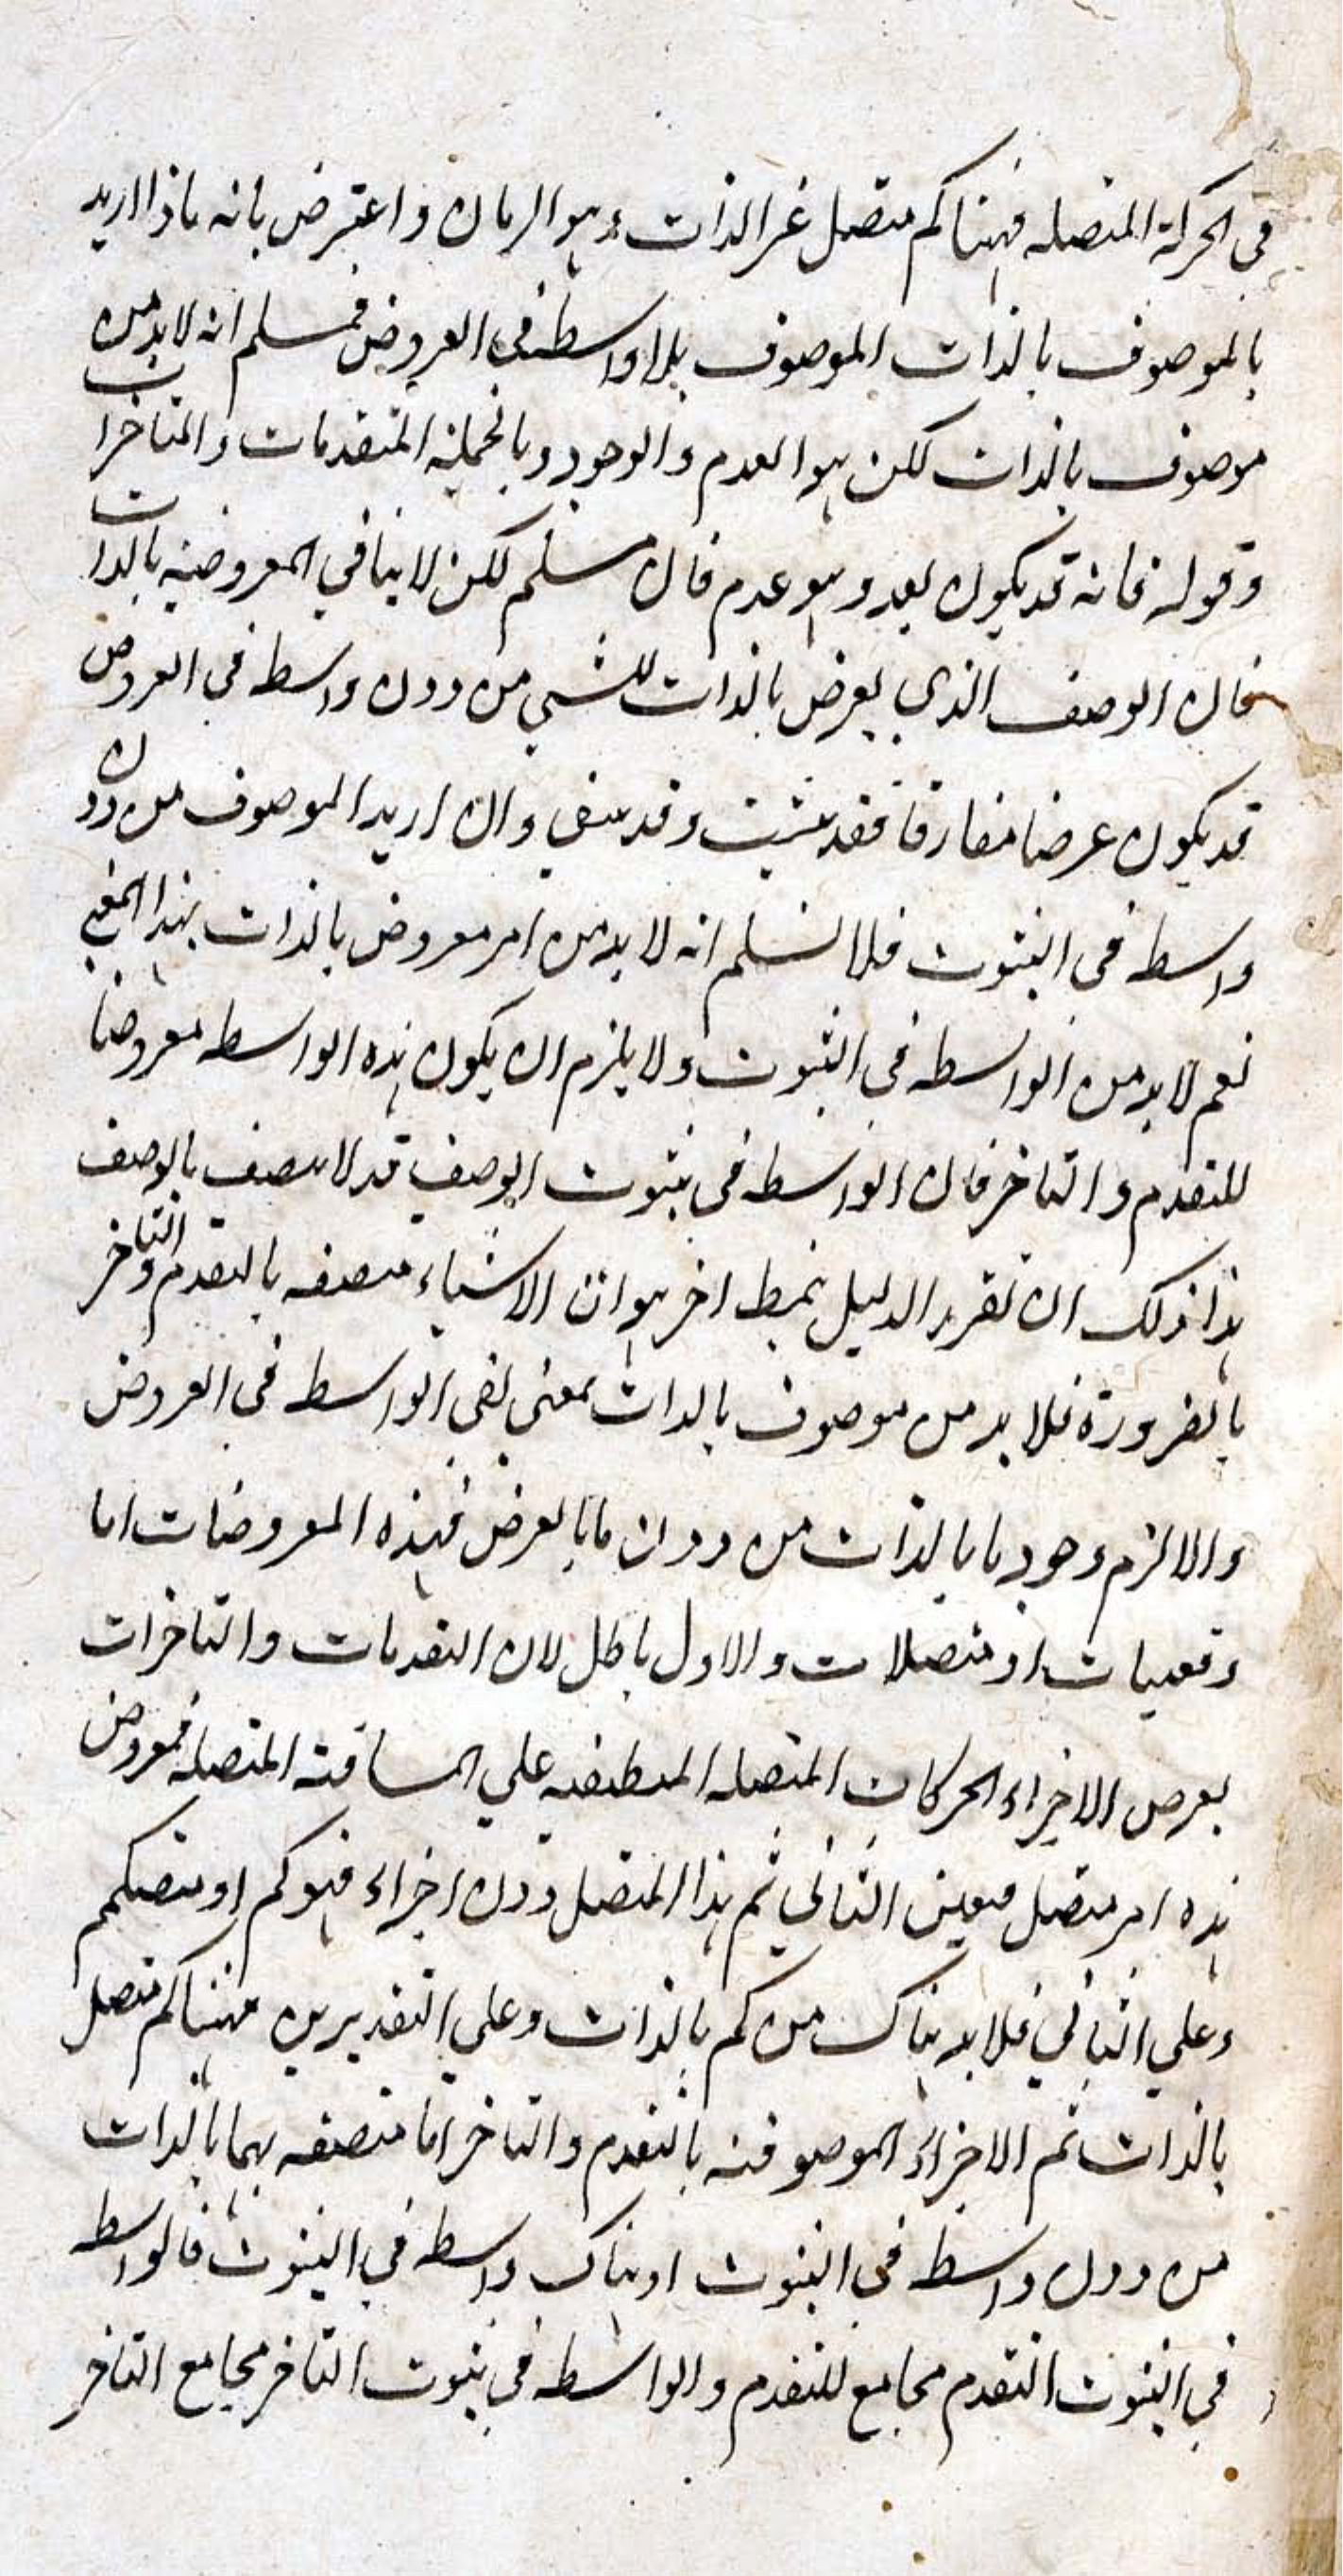 في الحركة المتصله فهناكم متصل غر الذات وهو الزمان واعترض بانه ماذا اريد
بالموصوف بالذات الموصوف بلا واسطه في العروض فمسلم انه لابد من
موصوف بالذات لكن هو العدم والوجود وبالجملة المتقدمات والمتاخرات
وقوله فانه قد يكون بعد وهو عدم فان مسلم لكن لا ينافي المعروضيه بالذات
فان الوصف الذي يعرض بالذات للشي من دون واسطه في العروض
قد يكون عرضا مفارقا فقد يثبت وقد ينتفي وان اريد الموصوف من دون
واسطه في الثبوت فلا نسلم انه لا بد من امر معروض بالذات بهذا المعني
نعم لا بد من الواسطه في الثبوت ولا يلزم ان يكون هذه الواسطه معروضا
للتقدم والتاخر فان الواسطه في ثبوت الوصف قد لا يتصف بالوصف
هذا فلك ان تقرر الدليل بنمط اخر هو ان الاشياء متصفه بالتقدم والتاخر
بالضرورة فلا بد من موصوف بالذات بمعنى نفي الواسطه في العروض
والا لزم وجود ما بالذات من دون ما بالعرض فهذه المعروضات اما
دفعيات او متصلات والاول باطل لان التقدمات والتاخرات
يعرض الاجزاء الحركات المتصله المنطبقه علي المسافته المتصله فمعروض
هذه امر متصل فتعين الثاني ثم هذا المتصل دون اجزاء فهو كم او متكمم
وعلي الثاني فلا بد هناك من كم بالذات وعلي التقديرين فهناكم متصل
بالذات ثم الاجزاء الموصوفته بالتقدم والتاخر اما متصفه بهما بالذات
من دون واسطه في الثبوت او هناك واسطه في الثبوت فالواسطه
في الثبوت التقدم مجامع للتقدم والواسطه في ثبوت التاخر مجامع التاخر